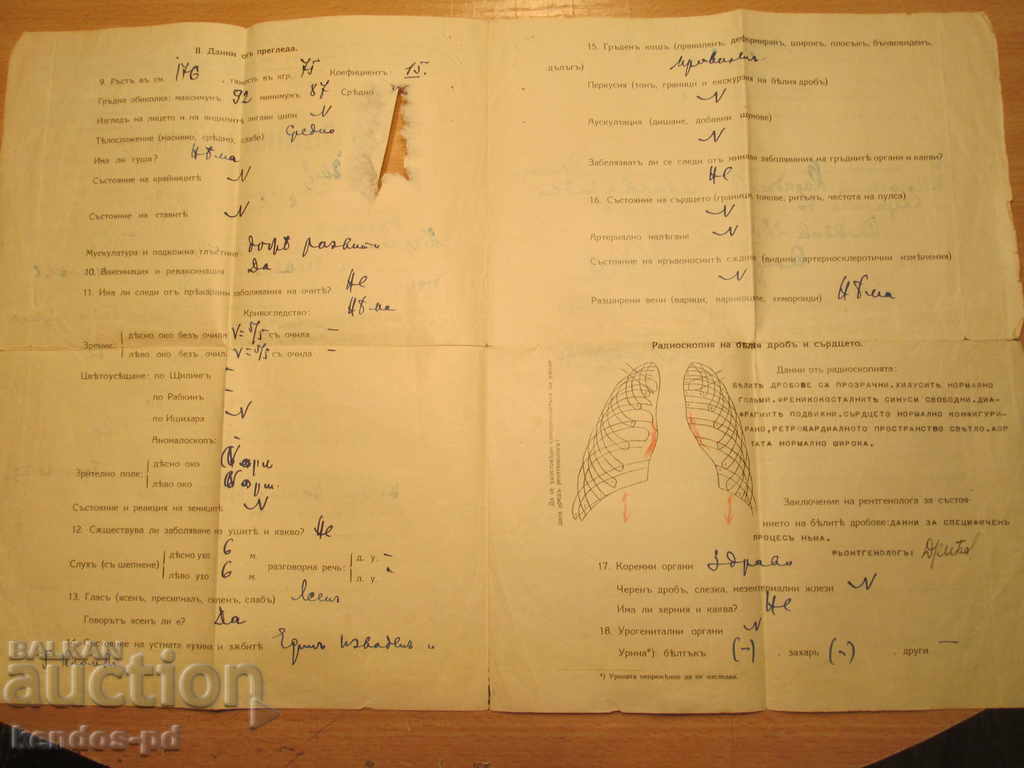 II. Данни отъ прегледа.
9. Ръстъ въ см. 176, тяжесть въ кгр. 75 Коефициентъ 15.
Гръдна обиколка: максимумъ 92 минимумъ 87 Срѣдно
Изгледъ на лицето и на видимитѣ лигави ципи N
Тѣлосложение (масивно, срѣдно, слабо) Средно
Има ли гуша? Нѣма
Състояние на крайницитѣ N
Състояние на ставитѣ N
Мускулатура и подкожна тлъстина: добрѣ развити
10. Ваксинация и реваксинация Да
11. Има ли следи отъ прѣкарани заболявания на очитѣ? Не
Кривогледство: Нѣма
Зрение: дѣсно око безъ очила V=5/5 съ очила –
лѣво око безъ очила V=5/5 съ очила –
Цвѣтоусѣщане: по Щилингъ –
по Рабкинъ –
по Ишихара N
Аномалоскопъ: –
Зрително поле: дѣсно око Норм
лѣво око Норм.
Състояние и реакция на зеницитѣ N
12. Сѫществува ли заболяване на ушитѣ и какво? Не
Слухъ (съ шепнене) дѣсно ухо 6 м. разговорна речь: д. у. –
лѣво ухо 6 м. л. у. –
13. Гласъ (ясенъ, пресипналъ, слабъ) Ясенъ
Говорътъ ясенъ ли е? Да
14. Състояние на устната кухина и зѫбитѣ Единъ изваденъ
15. Гръденъ кошъ (правиленъ, деформиранъ, широкъ, плосъкъ, бъчвовиденъ,
дълъгъ) Правиленъ
Перкусия (тонъ, граници и екскурзия на бѣлия дробъ)
N
Аускултация (дишане, добавни шумове)
N
Забелязватъ ли се следи отъ минали заболявания на гръднитѣ органи и какви?
Не
16. Състояние на сърдцето (граници, тонове, ритъмъ, честота на пулса)
N
Артериално налѣгане N
Състояние на кръвоноснитѣ сѫдини (видими артериосклеротични измѣнения)
N
Разширени вени (варици, варикоцеле, хемороиди) Нѣма
Радиоскопия на бѣлия дробъ и сърдцето.
Да се удостовѣри самоличностьта на явилия
се предъ рентгенолога!
Данни отъ радиоскопията:
БѢЛИТѢ ДРОБОВЕ СА ПРОЗРАЧНИ. ХИЛУСИТѢ НОРМАЛНО
ГОЛЬМИ. ФРЕНИКОКОСТАЛНИТѢ СИНУСИ СВОБОДНИ. ДИА-
ФРАГМИТѢ ПОДВИЖНИ. СЪРДЦЕТО НОРМАЛНО КОНФИГУРИ-
РАНО, РЕТРОКАРДИАЛНОТО ПРОСТРАНСТВО СВѢТЛО. АОР
ТАТА НОРМАЛНО ШИРОКА.
Заключение на рентгенолога за състоя-
нието на бѣлитѣ дробове: ДАННИ ЗА СПЕЦИФИЧЕНЪ
ПРОЦЕСЪ НЬМА.
РЬОНТГЕНОЛОГЪ:
17. Коремни органи Здрави
Черенъ дробъ, слезка, мезентериални жлези N
Има ли херния и каква? Не
18. Урогенитални органи N
Урина*) бѣлтъкъ (–) , захарь (–) , други –
*) Урината непремѣнно да се изследва.
BALKAN
auction
kendos-pd